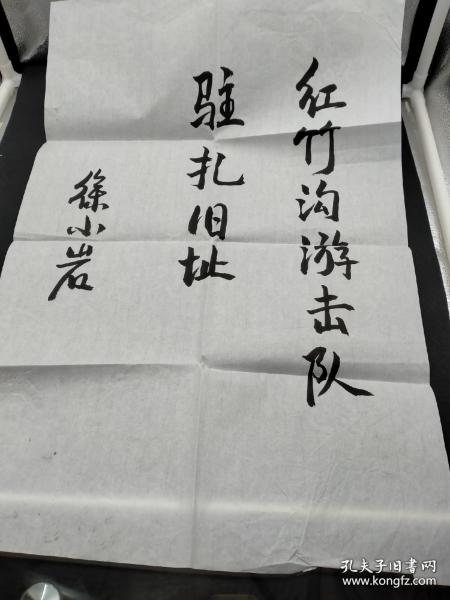 红竹沟游击队
驻扎旧址
徐小岩
孔夫子旧书网
www.kongfz.com